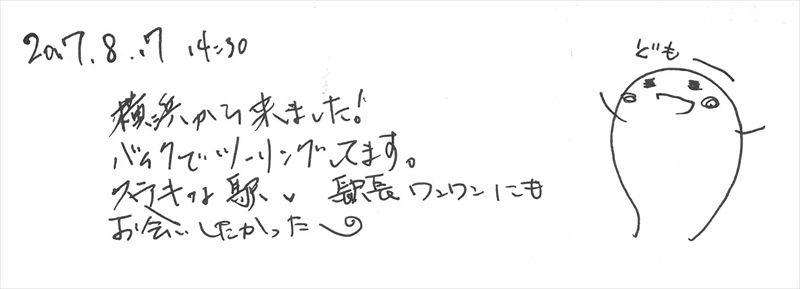 2017.8.17 14:30
どもー
横浜から来ました!
バイクでツーリングしてます。
ステキな駅、駅長ワンワンにも
お会いしたかった